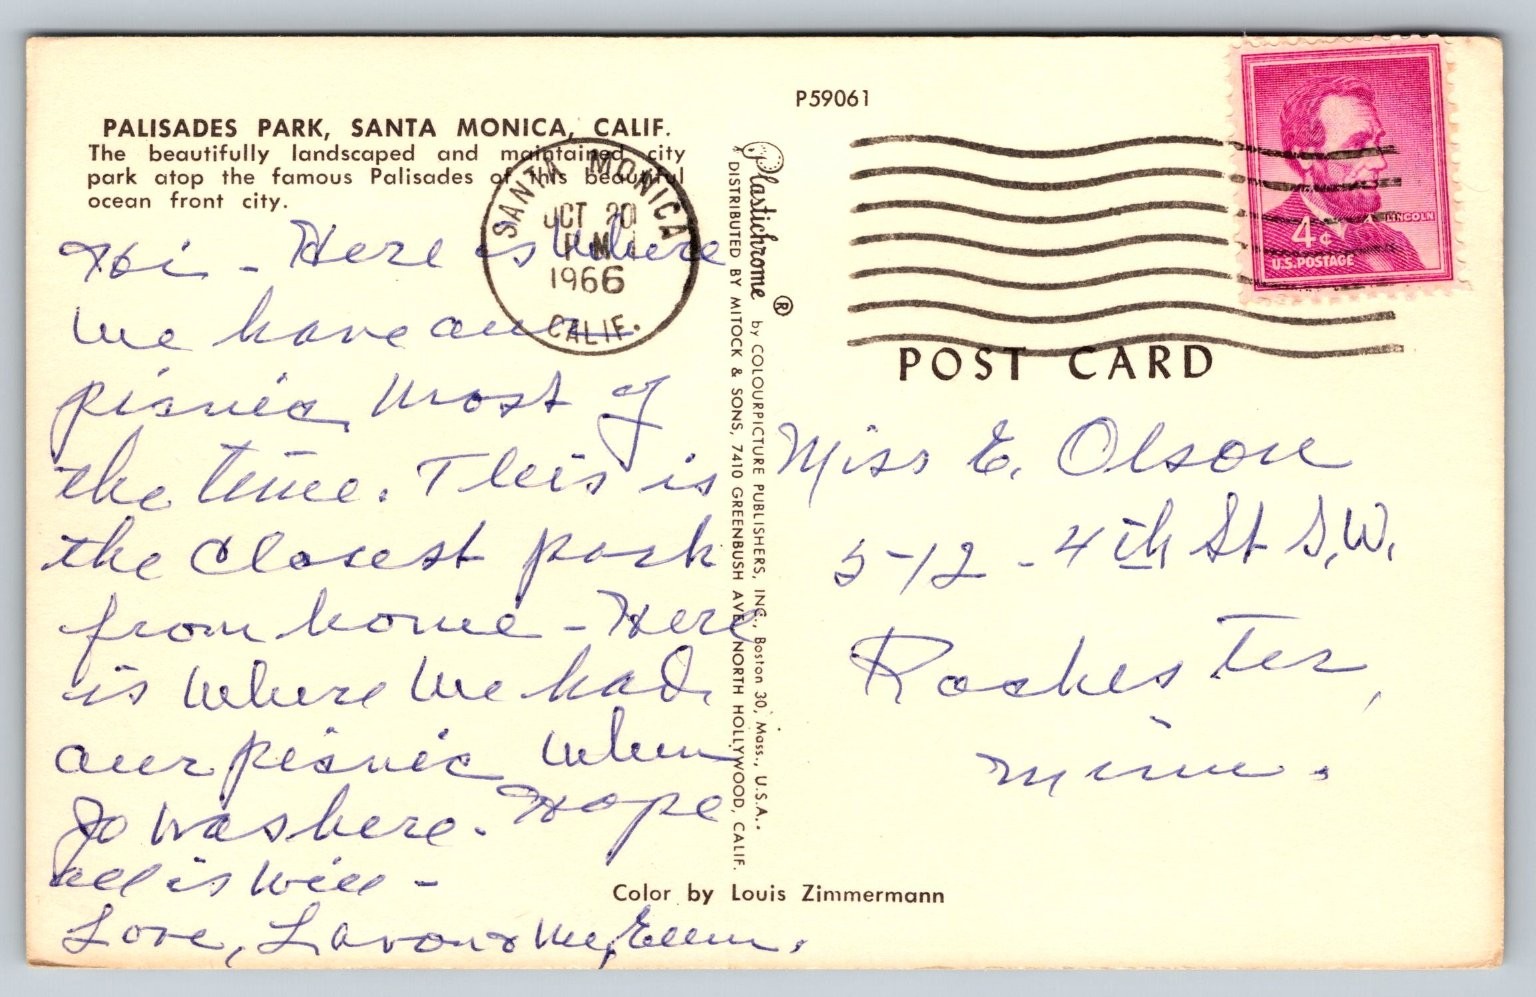 P59061
PALISADES PARK, SANTA MONICA, CALIF.
The beautifully landscaped and maintained city
park atop the famous Palisades of this beautiful
ocean front city.
SANTA MONICA
OCT 20
PM
1966
CALIF.
LINCOLN
4¢
U.S. POSTAGE
Hi - Here is where
we have our
picnic most of
the time. This is
the closest park
from home - Here
is where we had
our picnic when
Jo was here. Hope
all is well -
Love, Lavon &
Plastichrome ® by COLOURPICTURE PUBLISHERS, INC., Boston 30, Mass., U.S.A.
DISTRIBUTED BY MITOCK & SONS, 7410 GREENBUSH AVE, NORTH HOLLYWOOD, CALIF.
POST CARD
Miss E. Olson
512 - 4th St S.W.
Rochester,
Minn.
Color by Louis Zimmermann